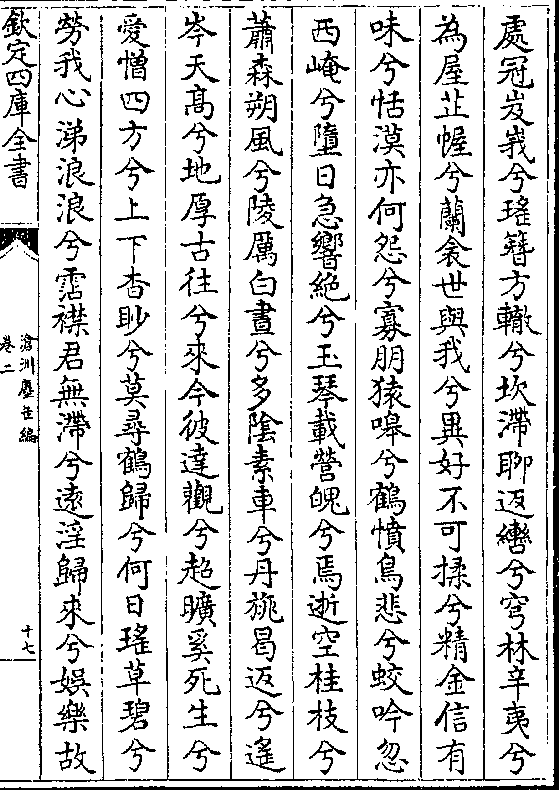 處冠岌峩兮瑤簪方轍兮坎滯聊返轡兮穹林辛夷兮
為屋芷幄兮蘭衾世與我兮異好不可揉兮精金信有
味兮恬漠亦何怨兮寡朋猿嘷兮鶴憤鳥悲兮蛟吟忽
西崦兮墮日急響絶兮玉琴載營魄兮焉逝空桂枝兮
蕭森朔風兮陵厲白晝兮多陰素車兮丹旐曷返兮遥
岑天髙兮地厚古往兮來今彼達觀兮超曠奚死生兮
愛憎四方兮上下杳眇兮莫尋鶴歸兮何日瑤草碧兮
勞我心涕浪浪兮霑襟君無滯兮逺淫歸來兮娯樂故
欽定四庫全書
滄洲塵缶編
卷二
十七